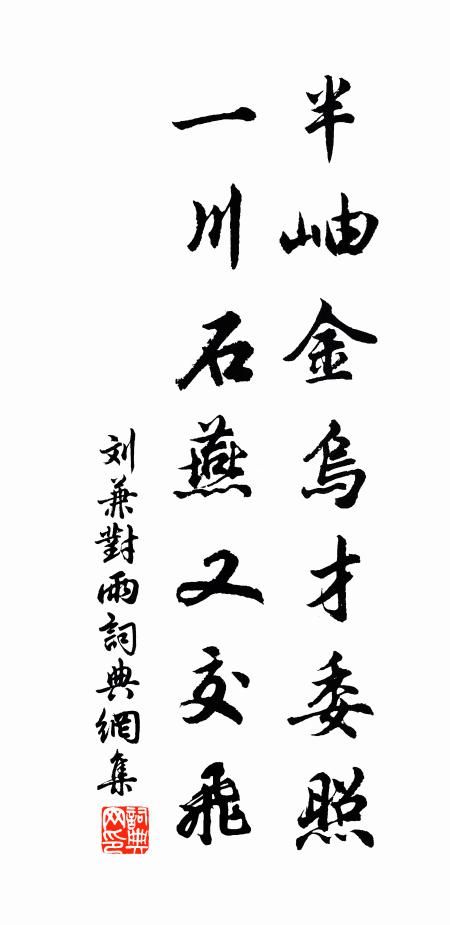 半岫金烏才委照
一川石燕又交飛
刘兼對雨詞典網集
詞典网印